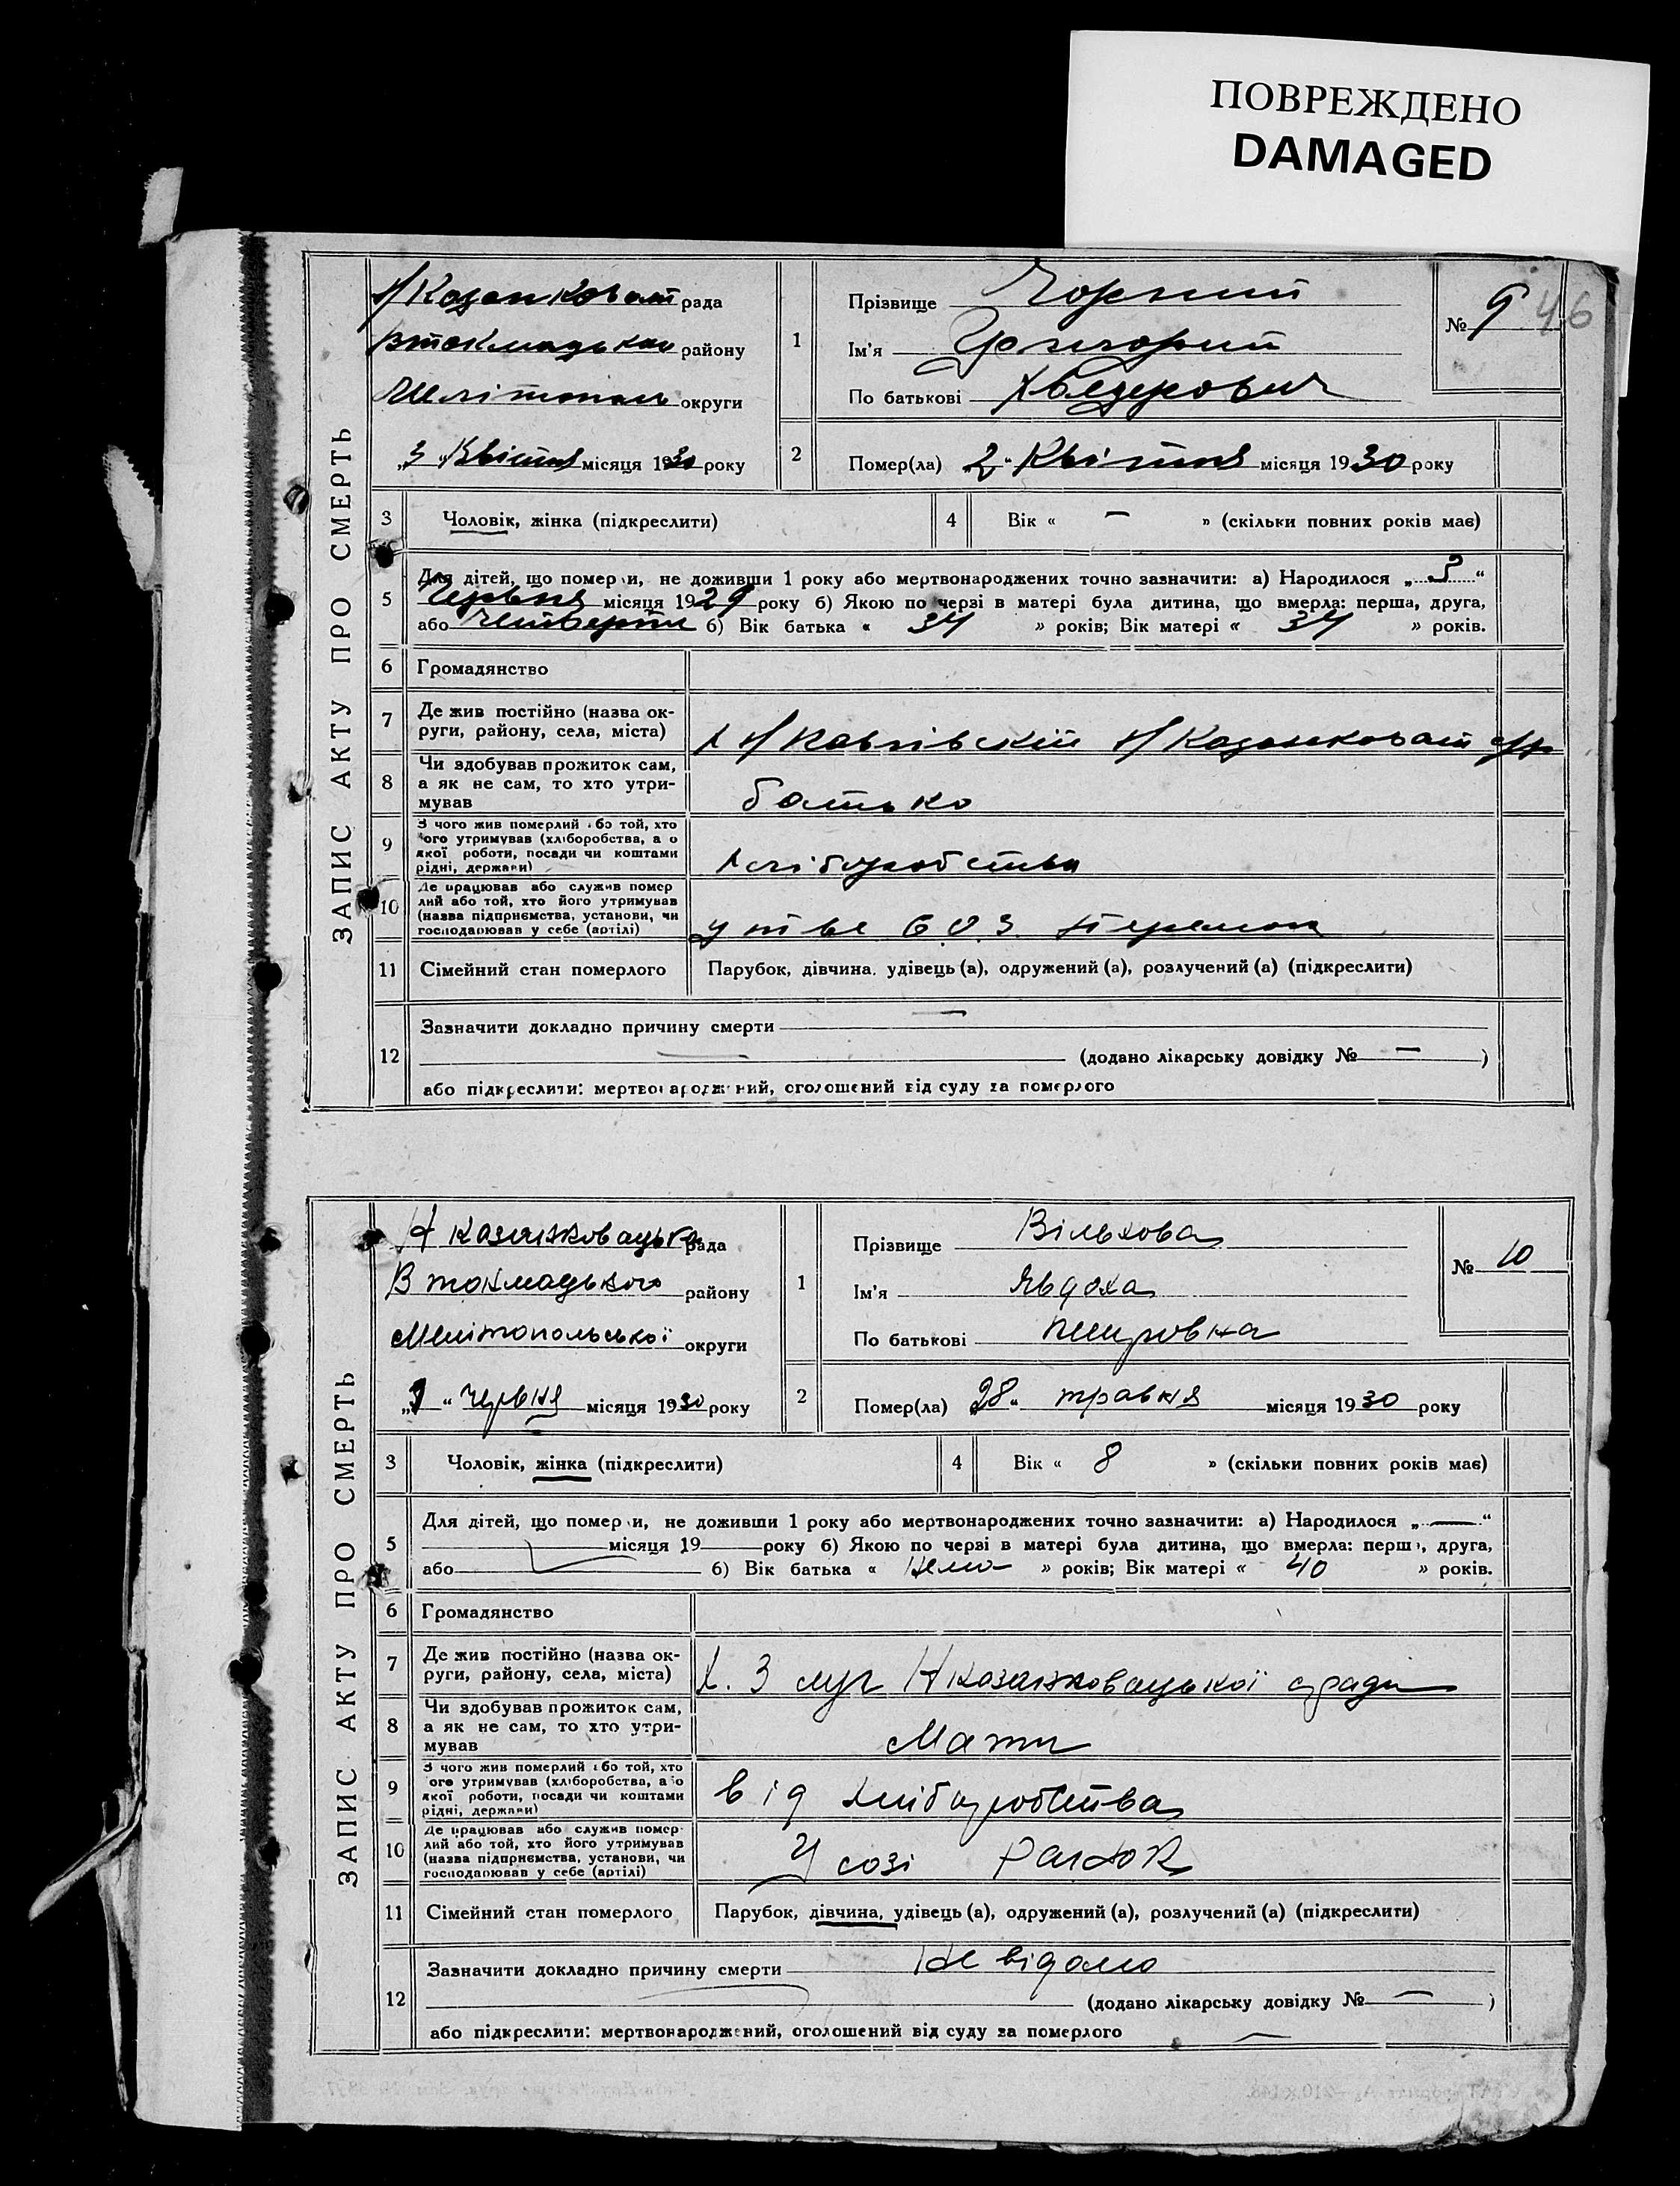 ПОВРЕЖДЕНО
DAMAGED
ЗАПИС АКТУ ПРО СМЕРТЬ
Н/Козанковат рада
Втокмацького району
Мелітополь округи
„3 „Квітня місяця 1930 року
1
Прізвище Чорний
Ім'я Григорий
По батькові Хведерович
№ 9 46
2
Помер(ла) „2“ Квітня місяця 1930 року
3 Чоловік, жінка (підкреслити)
4 Вік « — » (скільки повних років має)
5 Для дітей, що померли, не доживши 1 року або мертвонароджених точно зазначити: а) Народилося „ 3 “
Червня місяця 1929 року б) Якою по черзі в матері була дитина, що вмерла: перша, друга,
або четверта б) Вік батька « 34 » років; Вік матері « 34 » років.
6 Громадянство
7 Де жив постійно (назва ок-
руги, району, села, міста) Х Н/Павлівскій Н/Козанковат с/р
8 Чи здобував прожиток сам,
а як не сам, то хто утри-
мував батько
9 З чого жив померлий або той, хто
його утримував (хліборобства, або
якої роботи, посади чи коштами
рідні, держави) Хліборобства
10 Де працював або служив помер
лий або той, хто його утримував
(назва підприємства, установи, чи
господарював у себе (артілі) у тве С О З
11 Сімейний стан померлого Парубок, дівчина, удівець (а), одружений (а), розлучений (а) (підкреслити)
12 Зазначити докладно причину смерти —
— (додано лікарську довідку № — )
або підкреслити: мертвонароджений, оголошений від суду за померлого
ЗАПИС АКТУ ПРО СМЕРТЬ
Н Козанковацька рада
В токмацького району
Мелітопольської округи
„3 “ червня місяця 1930 року
1
Прізвище Вільхова
Ім'я Явдоха
По батькові Петровна
№ 10
2
Помер(ла) „28“ травня місяця 1930 року
3 Чоловік, жінка (підкреслити)
4 Вік « 8 » (скільки повних років має)
5 Для дітей, що померли, не доживши 1 року або мертвонароджених точно зазначити: а) Народилося „ — “
місяця 19 року б) Якою по черзі в матері була дитина, що вмерла: перша, друга,
або б) Вік батька « Нема » років; Вік матері « 40 » років.
6 Громадянство
7 Де жив постійно (назва ок-
руги, району, села, міста) Х. З луч Н Козанковацької с ради
8 Чи здобував прожиток сам,
а як не сам, то хто утри-
мував Мати
9 З чого жив померлий або той, хто
його утримував (хліборобства, або
якої роботи, посади чи коштами
рідні, держави) від хліборобства
10 Де працював або служив помер-
лий або той, хто його утримував
(назва підприємства, установи, чи
господарював у себе (артілі) У созі Ранок
11 Сімейний стан померлого Парубок, дівчина, удівець (а), одружений (а), розлучений (а) (підкреслити)
12 Зазначити докладно причину смерти Не відомо
(додано лікарську довідку № — )
або підкреслити: мертвонароджений, оголошений від суду за померлого